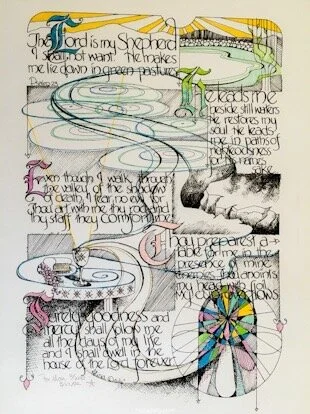 The Lord is my Shepherd
I shall not want. He makes
me lie down in green pastures
Psalm 23
He leads me
beside still waters
He restores my
soul. He leads
me in paths of
righteousness
for His names
sake
Even though I walk through
the valley of the shadow
of death, I fear no evil for
Thou art with me thy rod and
thy staff they comfort me
Thou preparest a
table for me in the
presence of mine
enemies. Thou anoints
my head with oil
My cup overflows
Surely goodness and
mercy shall follow me
all the days of my life
and I shall dwell in the
house of the Lord forever.